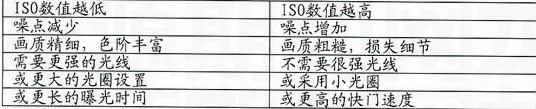 ISO数值越低 ISO数值越高
噪点减少 噪点增加
画质精细，色阶丰富 画质粗糙，损失细节
需要更强的光线 不需要很强光线
或更大的光圈设置 或采用小光圈
或更长的曝光时间 或更高的快门速度